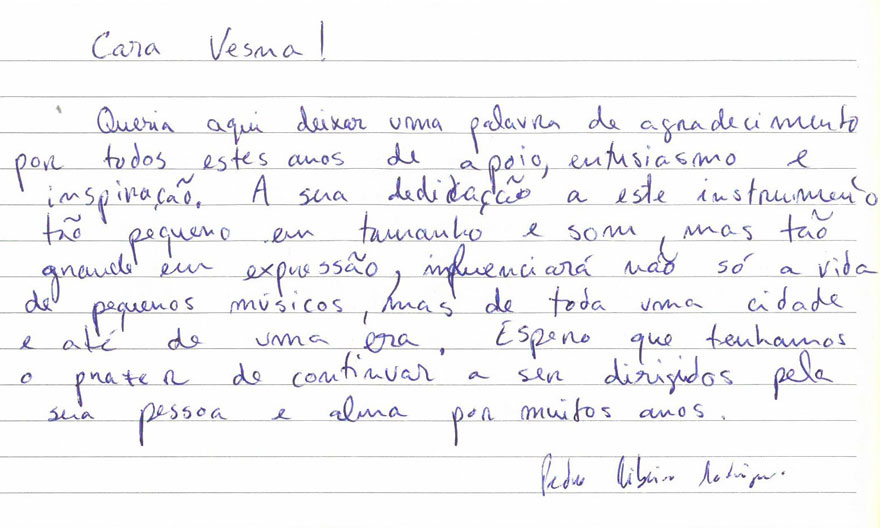 Cara Vesna!
Queria aqui deixar uma palavra de agradecimento
por todos estes anos de apoio, entusiasmo e
inspiração. A sua dedicação a este instrumento
tão pequeno em tamanho e som, mas tão
grande em expressão, influenciará não só a vida
de pequenos músicos, mas de toda uma cidade
e até de uma era. Espero que tenhamos
o prazer de continuar a ser dirigidos pela
sua pessoa e alma por muitos anos.
Pedro Ribeiro Rodrigues